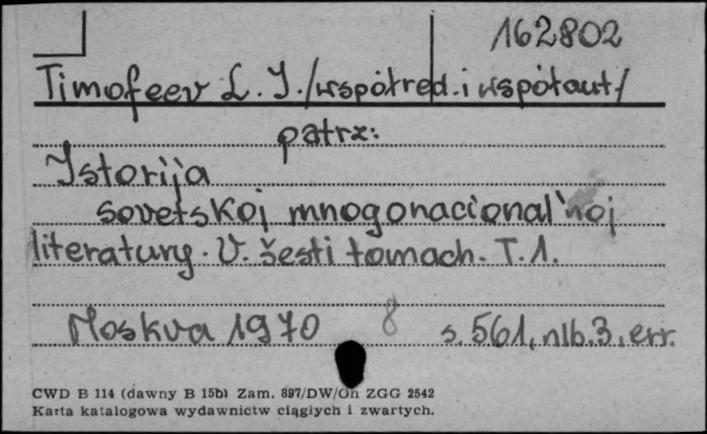 162802
Timofeev L. I. /współred. i współaut/
patrz:
Istorija
sovetskoj mnogonacional'noj
literatury. V. šesti tomach. T. 1.
Moskva 1970 8 s. 561, nlb. 3, err.
CWD B 114 (dawny B 15b) Zam. 897/DW/Oh ZGG 2542
Karta katalogowa wydawnictw ciągłych i zwartych.